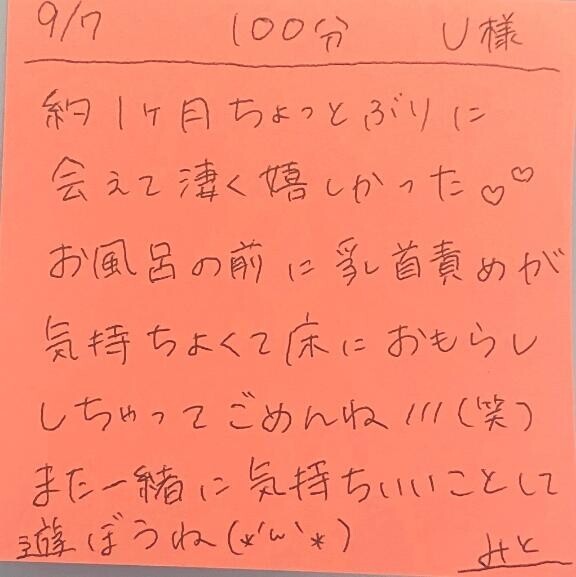 9/7 100分 U様
約1ヶ月ちょっとぶりに
会えて凄く嬉しかった♡♡
お風呂の前に乳首責めが
気持ちよくて床におもらし
しちゃってごめんね///(笑)
また一緒に気持ちいいことして
遊ぼうね(*'ω'*) みと